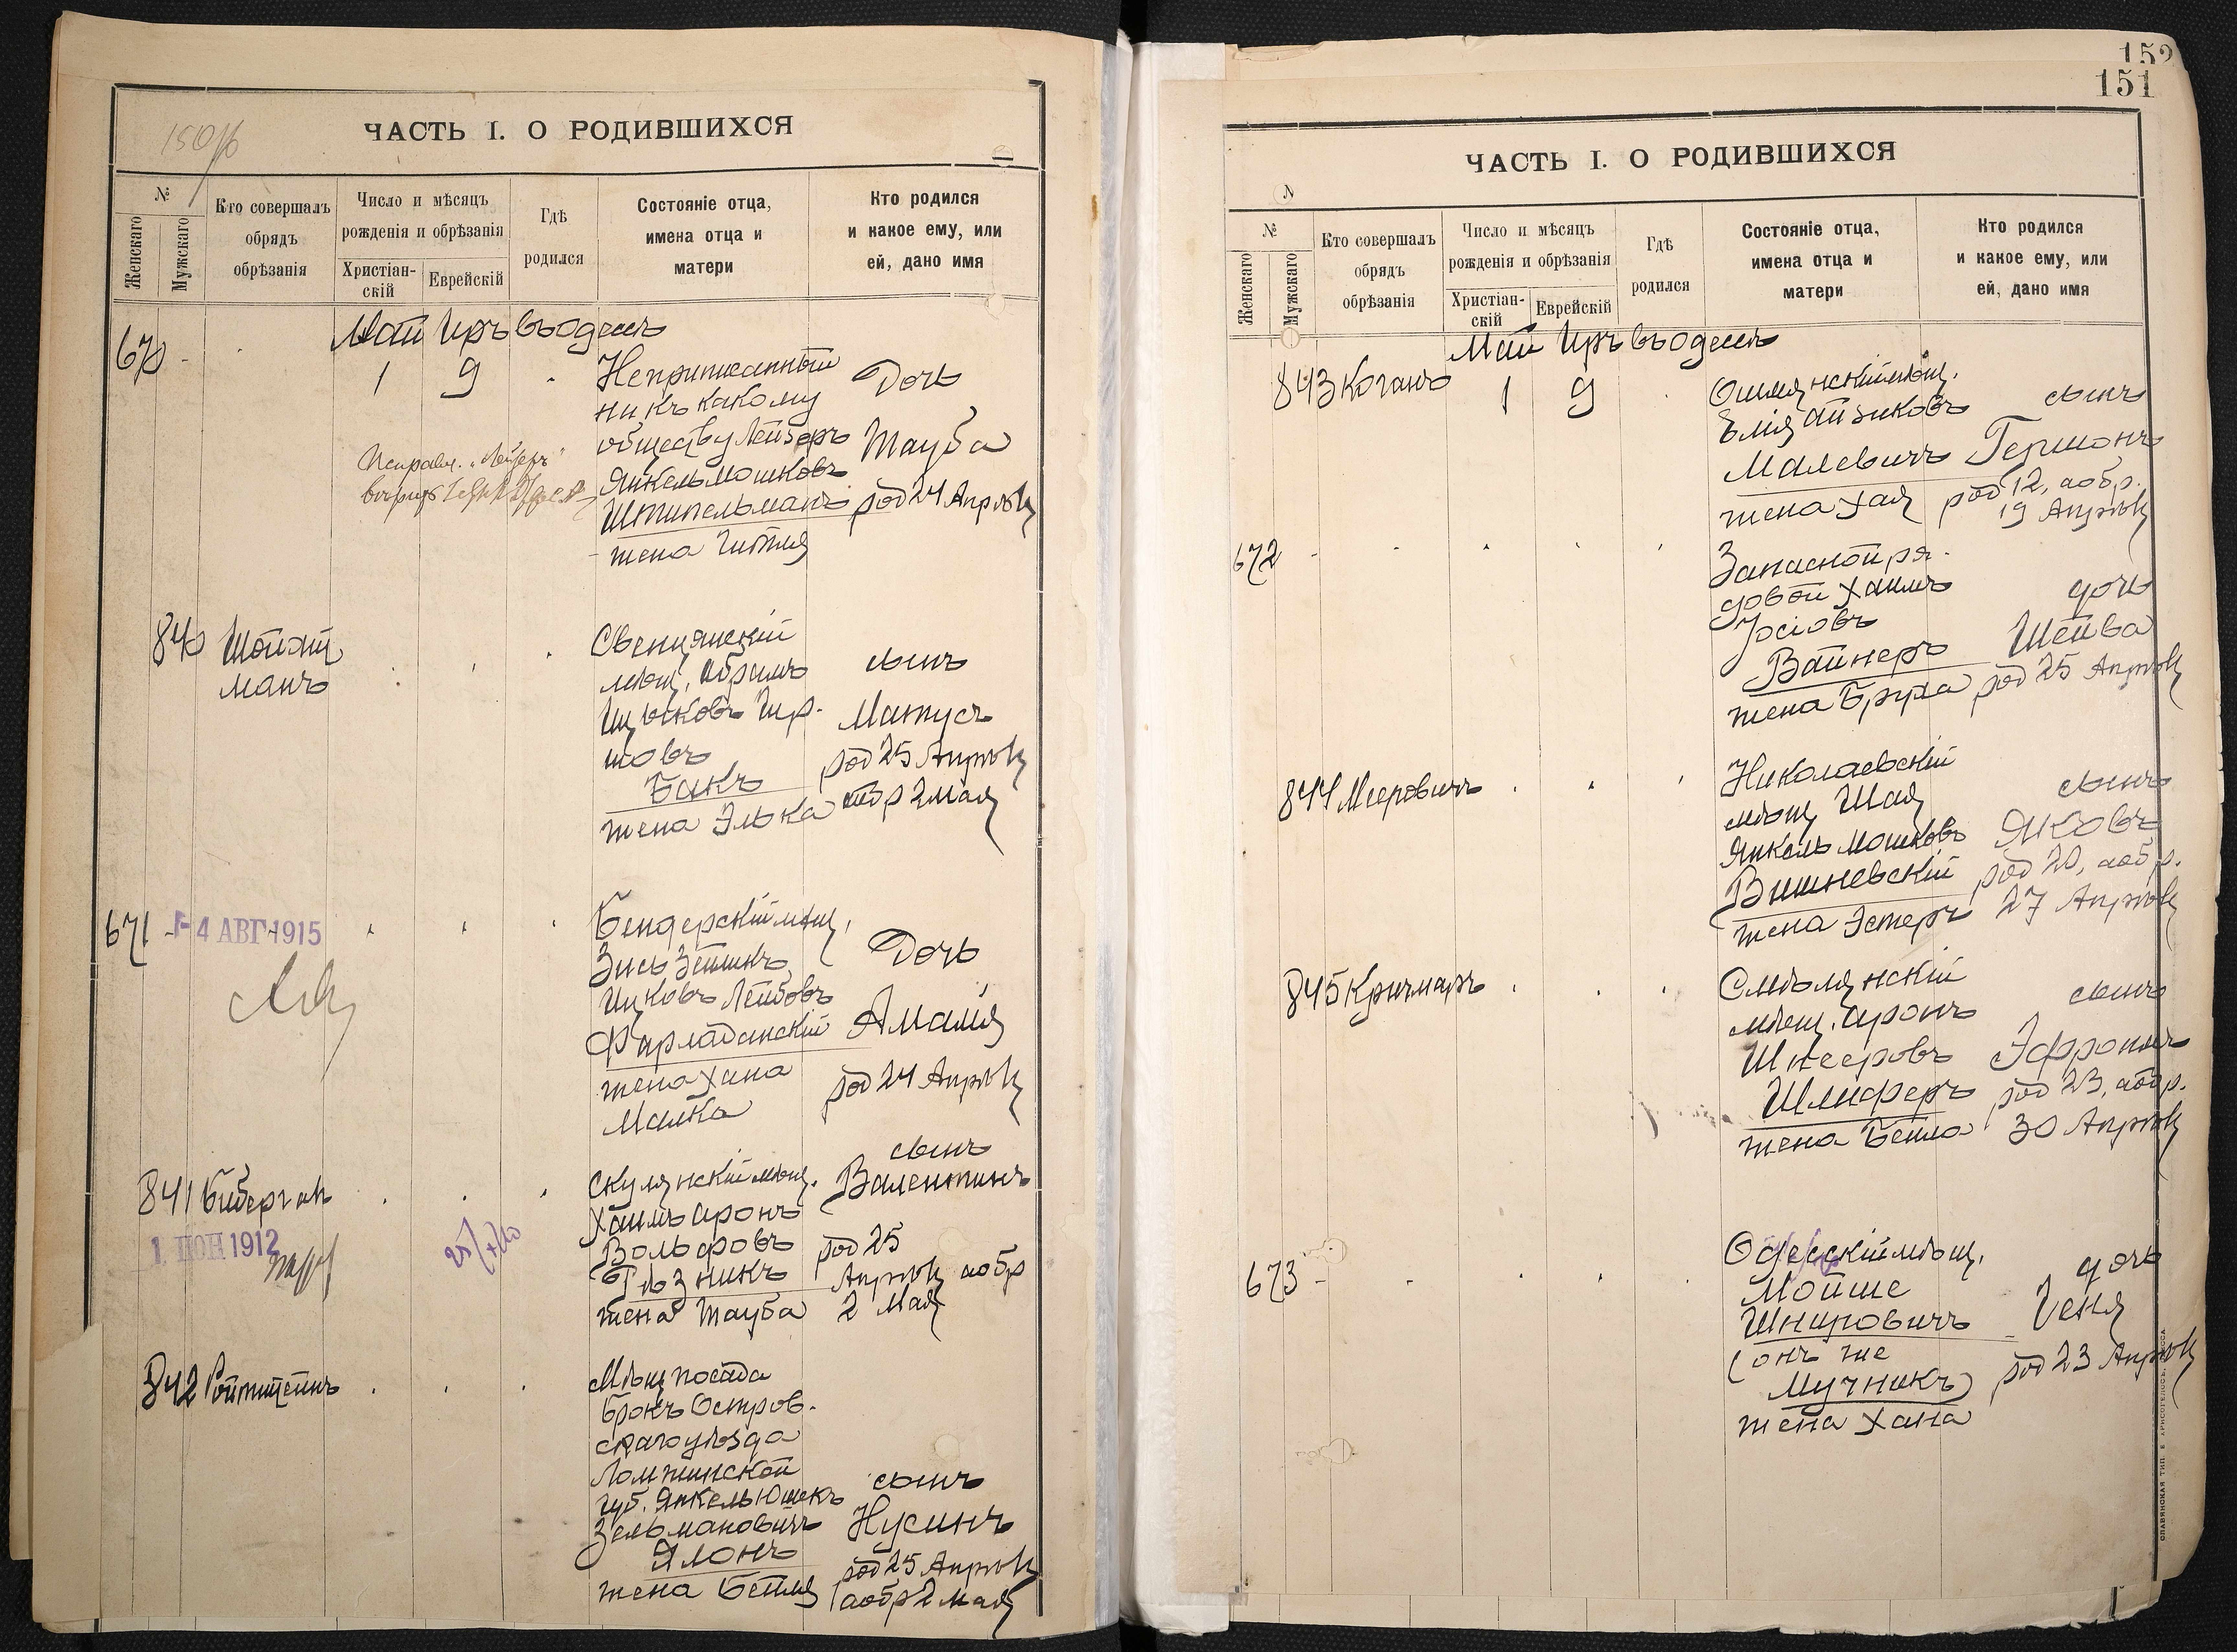 150об
ЧАСТЬ I. О РОДИВШИХСЯ
№
Женскаго
Мужскаго
Кто совершалъ
обрядъ
обрѣзанія
Число и мѣсяцъ
рожденія и обрѣзанія
Христіан-
скій
Еврейскій
Гдѣ
родился
Состояніе отца,
имена отца и
матери
Кто родился
и какое ему, или
ей, дано имя
Май Иръ въ Одессѣ
670 -
1 9
Неприписанный
ни къ какому
обществу Лейзеръ
Янкель Мошковъ
Штипельманъ
жена Гитля
Дочь
Тауба
род 24 Апрѣля
Исправл. „Лейзеръ"
840 Шойхт
манъ
Свенцянскій
мѣщ. Абрамъ
Ицковъ Гир-
шовъ
Бакъ
жена Элька
сынъ
Матусъ
род 25 Апрѣля
а обр 2 мая
671 -
4 АВГ 1915
Бендерскій мѣщ.
Зись Зейликъ
Ицковъ Лейбовъ
Фарладанскій
жена Хана
Малка
Дочь
Амалія
род 24 Апрѣля
841 Бибергалъ
1 ІЮН 1912
Скулянскій мѣщ.
Хаимъ Аронъ
Вольфовъ
Гѣзникъ
жена Тауба
сынъ
Валентинъ
род 25
Апрѣля а обр
2 Мая
842 Ройтштейнъ
Мѣщ посада
Брокъ Остров-
скаго уѣзда
Ломжинской
губ. Янкель Юшекъ
Зельмановичъ
Ялонъ
жена Бейля
сынъ
Нусинъ
род 25 Апрѣля
а обр 2 мая
152
151
ЧАСТЬ I. О РОДИВШИХСЯ
№
Женскаго
Мужскаго
Кто совершалъ
обрядъ
обрѣзанія
Число и мѣсяцъ
рожденія и обрѣзанія
Христіан-
скій
Еврейскій
Гдѣ
родился
Состояніе отца,
имена отца и
матери
Кто родился
и какое ему, или
ей, дано имя
Май Иръ въ Одессѣ
843 Коганъ
1 9
Ошмянскій мѣщ.
Элія Айзиковъ
Малевичъ
жена Хая
сынъ
Гершонъ
род 12, а обр.
19 Апрѣля
672 -
Запасной ря-
довой Хаимъ
Іосіовъ
Вайнеръ
жена Бруха
дочь
Шейва
род 25 Апрѣля
844 Мееровичъ
Николаевскій
мѣщ Шая
Янкель Мошковъ
Вишневскій
жена Эстеръ
сынъ
Яковъ
род 20, а обр.
27 Апрѣля
845 Кричмаръ
Смѣлянскій
мѣщ. Аронъ
Шнееровъ
Шлиферъ
жена Бейла
сынъ
Эфроимъ
род 23, а обр.
30 Апрѣля
673 -
Одесскій мѣщ.
Мойше
Шнировичъ
(онъ же
Мучникъ)
жена Хана
дочь
Геня
род 23 Апрѣля